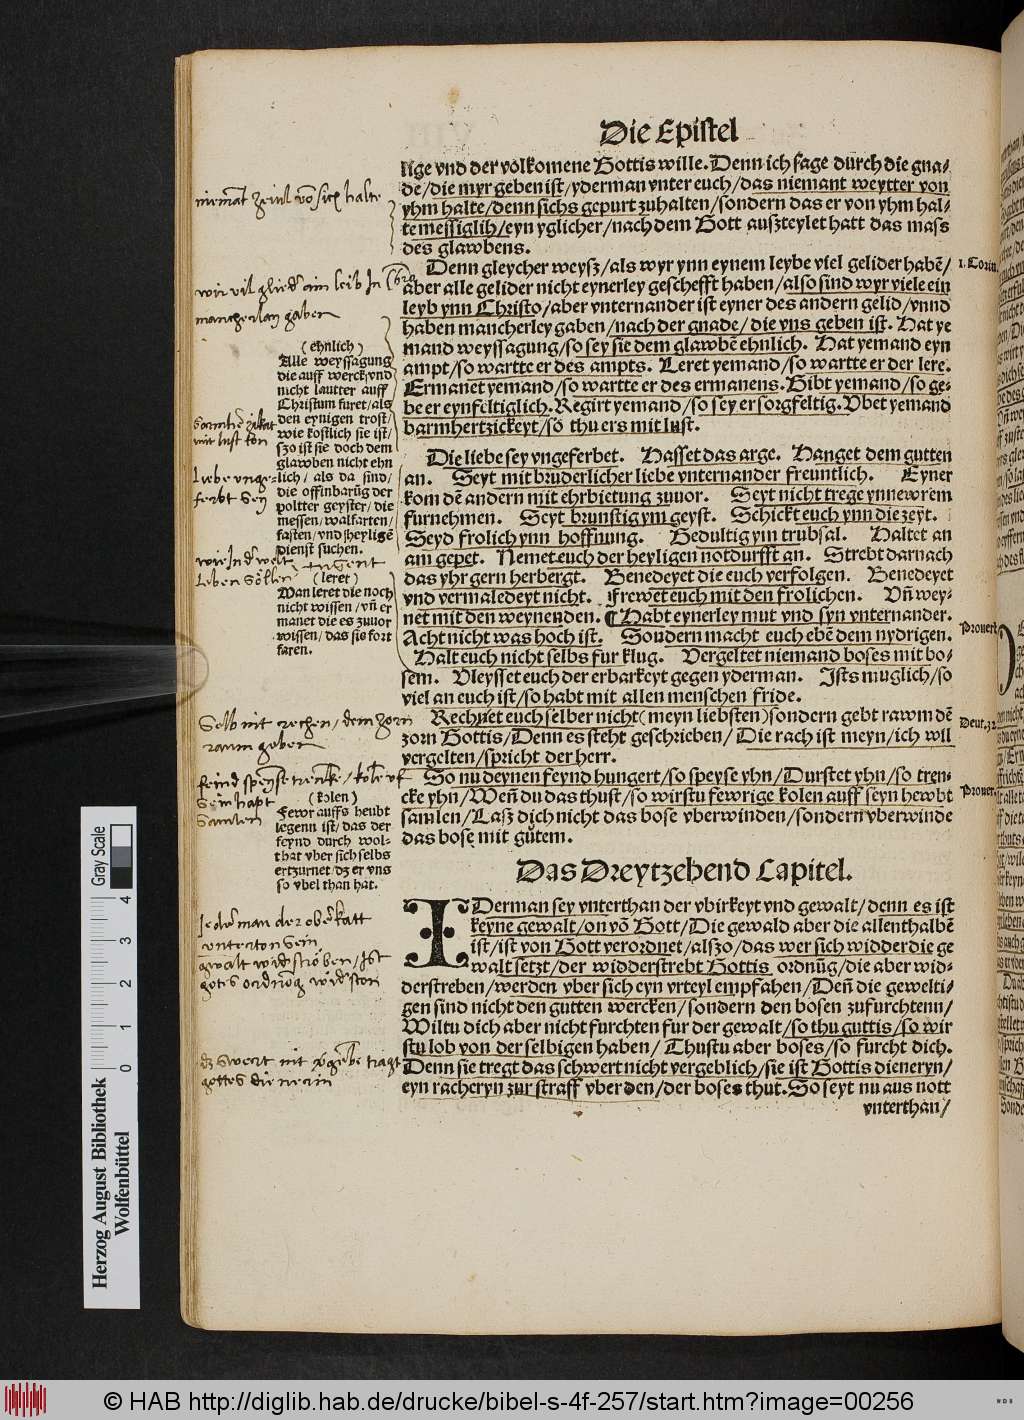 Die Epistel
lige vnd der volkomene Gottis wille. Denn ich sage durch die gna-
de/die myr geben ist/yderman vnter euch/das niemant weytter von
yhm halte/denn sichs gepurt zuhalten/sondern das er von yhm hal-
te messiglih/eyn yglicher/nach dem Gott auszteylet hatt das mass
des glawbens.
Denn gleycher weysz/als wyr ynn eynem leybe viel gelider habē/
aber alle gelider nicht eynerley geschefft haben/also sind wyr viele ein
leyb ynn Christo/aber vnternander ist eyner des andern gelid/vnnd
haben mancherley gaben/nach der gnade/die vns geben ist. Hat ye
mand weyssagung/so sey sie dem glawbē ehnlich. Hat yemand eyn
ampt/so wartte er des ampts. Leret yemand/so wartte er der lere.
Ermanet yemand/so wartte er des ermanens. Gibt yemand/so ge-
be er eynfeltiglich. Regirt yemand/so sey er sorgfeltig. Vbet yemand
barmhertzickeyt/so thu ers mit lust.
Die liebe sey vngeferbet. Hasset das arge. Hanget dem gutten
an. Seyt mit bruderlicher liebe vnternander freuntlich. Eyner
kom dē andern mit ehrbietung zuuor. Seyt nicht trege ynn ewrem
furnehmen. Seyt brunstig ym geyst. Schickt euch ynn die zeyt.
Seyd frolich ynn hoffnung. Gedultig ym trubsal. Haltet an
am gepet. Nemet euch der heyligen notdurfft an. Strebt darnach
das yhr gern herbergt. Benedeyet die euch verfolgen. Benedeyet
vnd vermaledeyt nicht. Frewet euch mit den frolichen. Vñ wey-
net mit den weynenden. Habt eynerley mut vnd syn vnternander.
Acht nicht was hoch ist. Sondern macht euch ebē dem nydrigen.
Halt euch nicht selbs fur klug. Vergeltet niemand boses mit bo-
sem. Vleysset euch der erbarkeyt gegen yderman. Ists muglich/so
viel an euch ist/so habt mit allen menschen fride.
Rechnet euch selber nicht (meyn liebsten) sondern gebt rawm dē
zorn Gottis/Denn es steht geschrieben/Die rach ist meyn/ich wil
vergelten/spricht der herr.
So nu deynen feynd hungert/so speyse yhn/Durstet yhn/so tren-
cke yhn/Weñ du das thust/so wirstu fewrige kolen auff seyn hewbt
samlen/Lasz dich nicht das bose vberwinden/sondern vberwinde
das bose mit gůtem.
Das Dreytzehend Capitel.
IDerman sey vnterthan der vbirkeyt vnd gewalt/denn es ist
keyne gewalt/on võ Gott/Die gewald aber die allenthalbē
ist/ist von Gott verordnet/alszo/das wer sich widder die ge
walt setzt/der widderstrebt Gottis ordnũg/die aber wid-
derstreben/werden vber sich eyn vrteyl empfahen/Deñ die gewelti-
gen sind nicht den gutten wercken/sondern den bosen zufurchtenn/
Wiltu dich aber nicht furchten fur der gewalt/so thu guttis/so wir
stu lob von der selbigen haben/Thustu aber boses/so furcht dich.
Denn sie tregt das schwert nicht vergeblich/sie ist Gottis dieneryn/
eyn racheryn zur straff vber den/der boses thut. So seyt nu aus nott
vnterthan/
(ehnlich)
Alle weyssagung
die auff werck vnd
nicht lautter auff
Christum furet/als
den eynigen trost/
wie kostlich sie ist/
szo ist sie doch dem
glawben nicht ehn
lich/als da sind/
die offinbarũg der
poltter geyster/die
messen/walfarten/
fasten/vnd heyligē
dienst suchen.
(leret)
Man leret die noch
nicht wissen/vñ er
manet die es zuuor
wissen/das sis fort
faren.
(kolen)
Fewr auffs heubt
legenn ist/das der
feynd durch wol-
that vber sich selbs
ertzurnet/dz er vns
so vbel than hat.
1. Corin.
Prouerb.
Deut. 32
Prouer.
niemāt
mancherlay gaben
Liebe vnge-
ferbt sey
Leben söllen
raum geben
samlen
Jederman der oberkatt
vnterton sein
Herzog August Bibliothek
Wolfenbüttel
Gray Scale
0 1 2 3 4
© HAB http://diglib.hab.de/drucke/bibel-s-4f-257/start.htm?image=00256